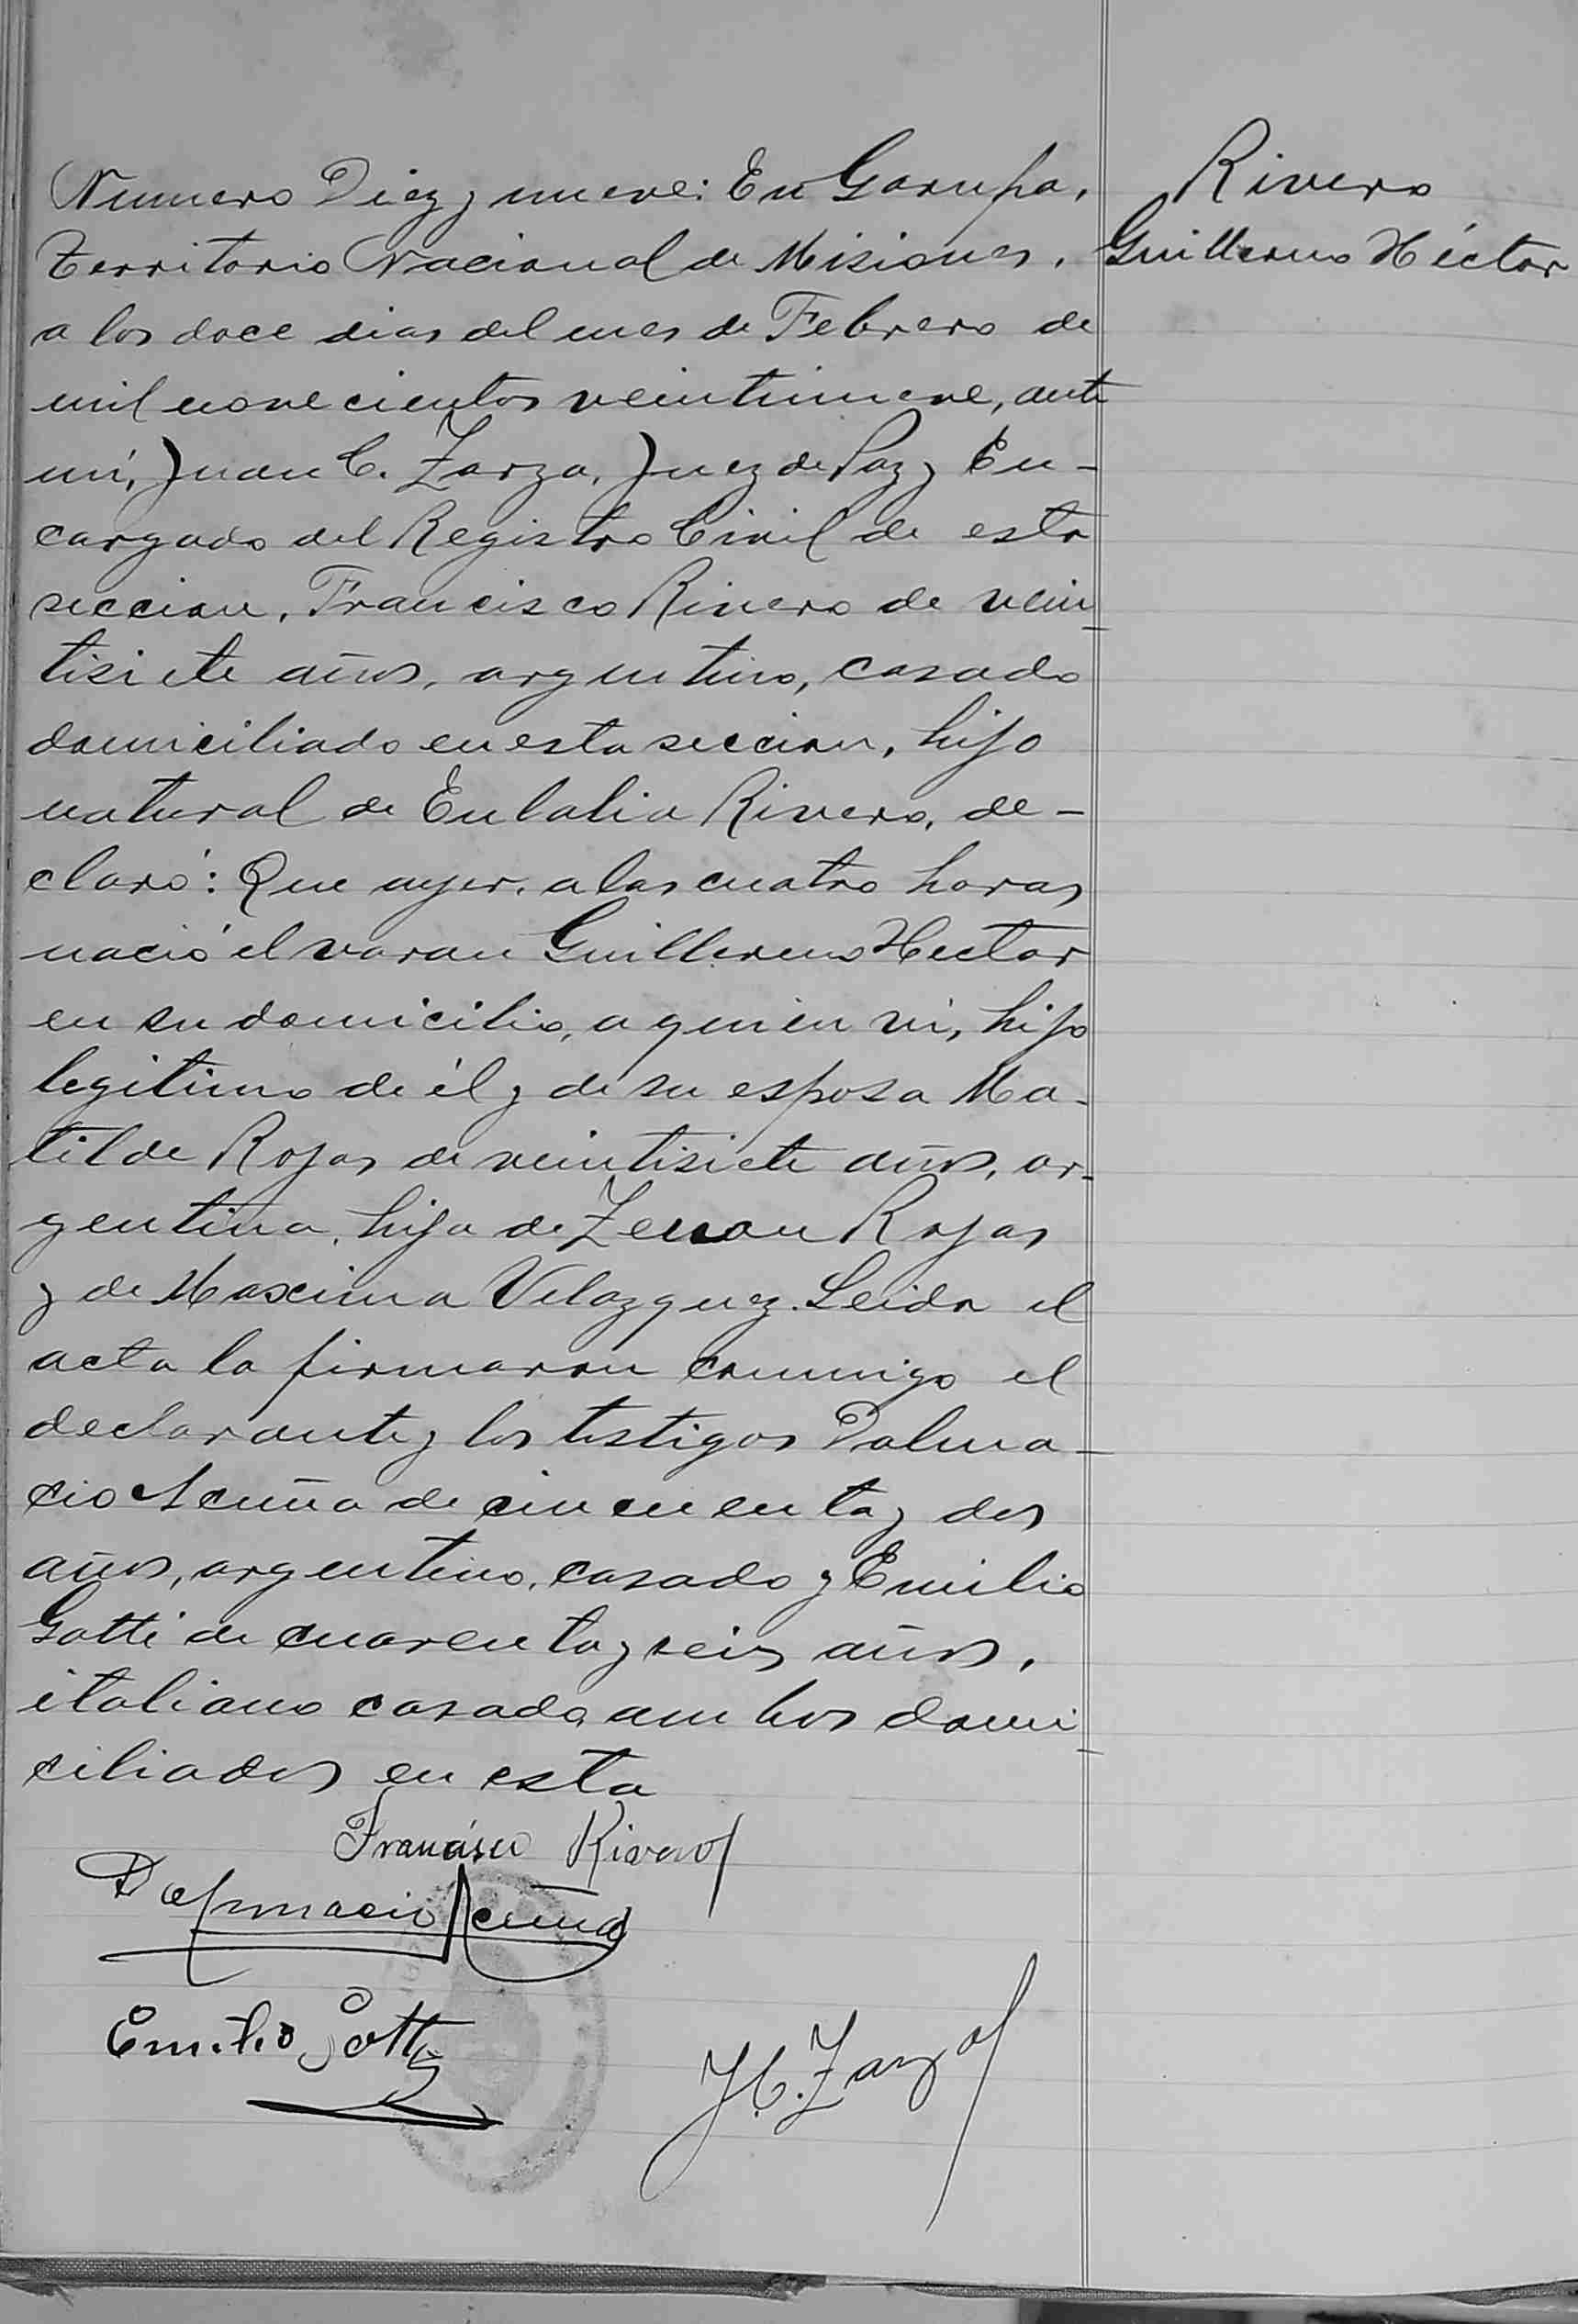 Rivero
Guillermo Héctor
Numero Diez y nueve: En Garupa,
Territorio Nacional de Misiones,
a los doce dias del mes de Febrero de
mil novecientos veintinueve, ante
mí, Juan C. Zarza, Juez de Paz y En-
cargado del Registro Civil de esta
seccion, Francisco Rivero de vein-
tisiete años, argentino, casado
domiciliado en esta seccion, hijo
natural de Eulalia Rivero, de-
claró: Que ayer, a las cuatro horas
nació el varon Guillermo Hector
en su domicilio, a quien vi, hijo
legitimo de él y de su esposa Ma-
tilde Rojas de veintisiete años, ar-
gentina, hija de Zenon Rojas
y de Maxima Velazquez. Leida el
acta la firmaron conmigo el
declarante y los testigos Dalma-
cio Acuña de cincuenta y dos
años, argentino, casado y Emilio
Gotti de cuarenta y seis años,
italiano casado ambos domi-
ciliados en esta
Francisco Rivero
Dalmacio Acuña
Emilio Gotti
J. C. Zarza